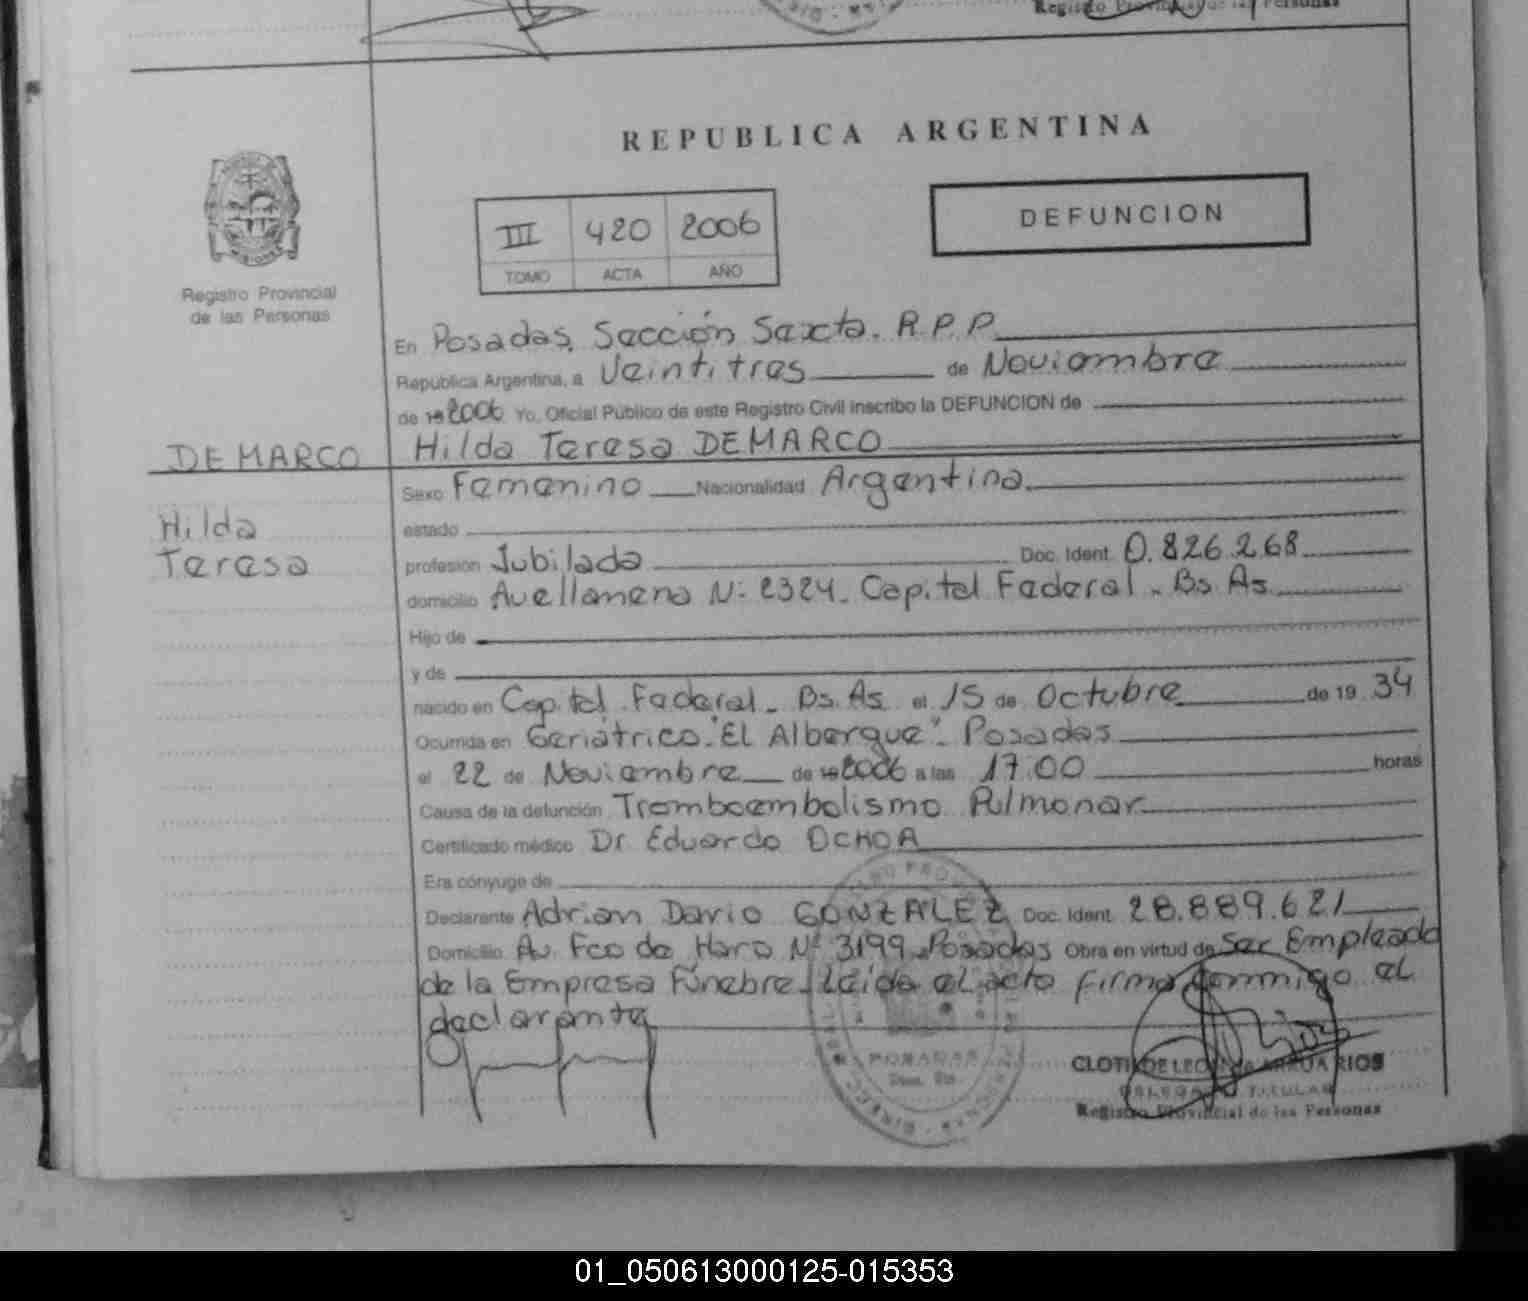 Registro Provincial de las Personas
REPUBLICA ARGENTINA
III 420 2006
TOMO ACTA AÑO
DEFUNCION
Registro Provincial
de las Personas
En Posadas, Sección Sexta. R.P.P.
Republica Argentina, a Veintitres de Noviembre
de 19 2006 Yo, Oficial Público de este Registro Civil inscribo la DEFUNCION de
DEMARCO Hilda Teresa DEMARCO
Sexo Femenino Nacionalidad Argentina
Hilda
Teresa
estado
profesión Jubilada Doc. Ident. 0.826.268
domicilio Avellaneda N: 2324. Capital Federal - Bs. As.
Hijo de
y de
nacido en Capital Federal - Bs. As. el 15 de Octubre de 19 34
Ocurrida en Geriátrico "El Albergue" - Posadas
el 22 de Noviembre de 19 2006 a las 17:00 horas
Causa de la defunción Tromboembolismo Pulmonar
Certificado médico Dr. Eduardo OCHOA
Era cónyuge de
Declarante Adrian Dario GONZALEZ Doc. Ident. 28.889.621
Domicilio Av. Fco de Haro Nº 3199. Posadas Obra en virtud de Ser Empleado
de la Empresa Fúnebre - Leida el acta firma conmigo el
declarante
POSADAS
DELEGADO TITULAR
Registro Provincial de las Personas
01_050613000125-015353